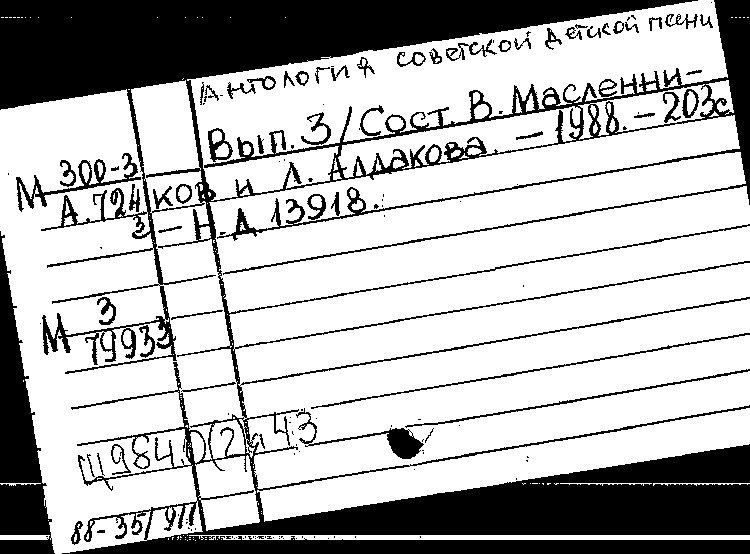 Антология советской детской песни
Вып. 3/Сост. В. Масленни-
ков и Л. Алдакова. – 1988. – 203с.
– Н.Д. 13918.
М 300-3
А.724
3
М 3
79933
Щ984.0(2)я43
88-35/911